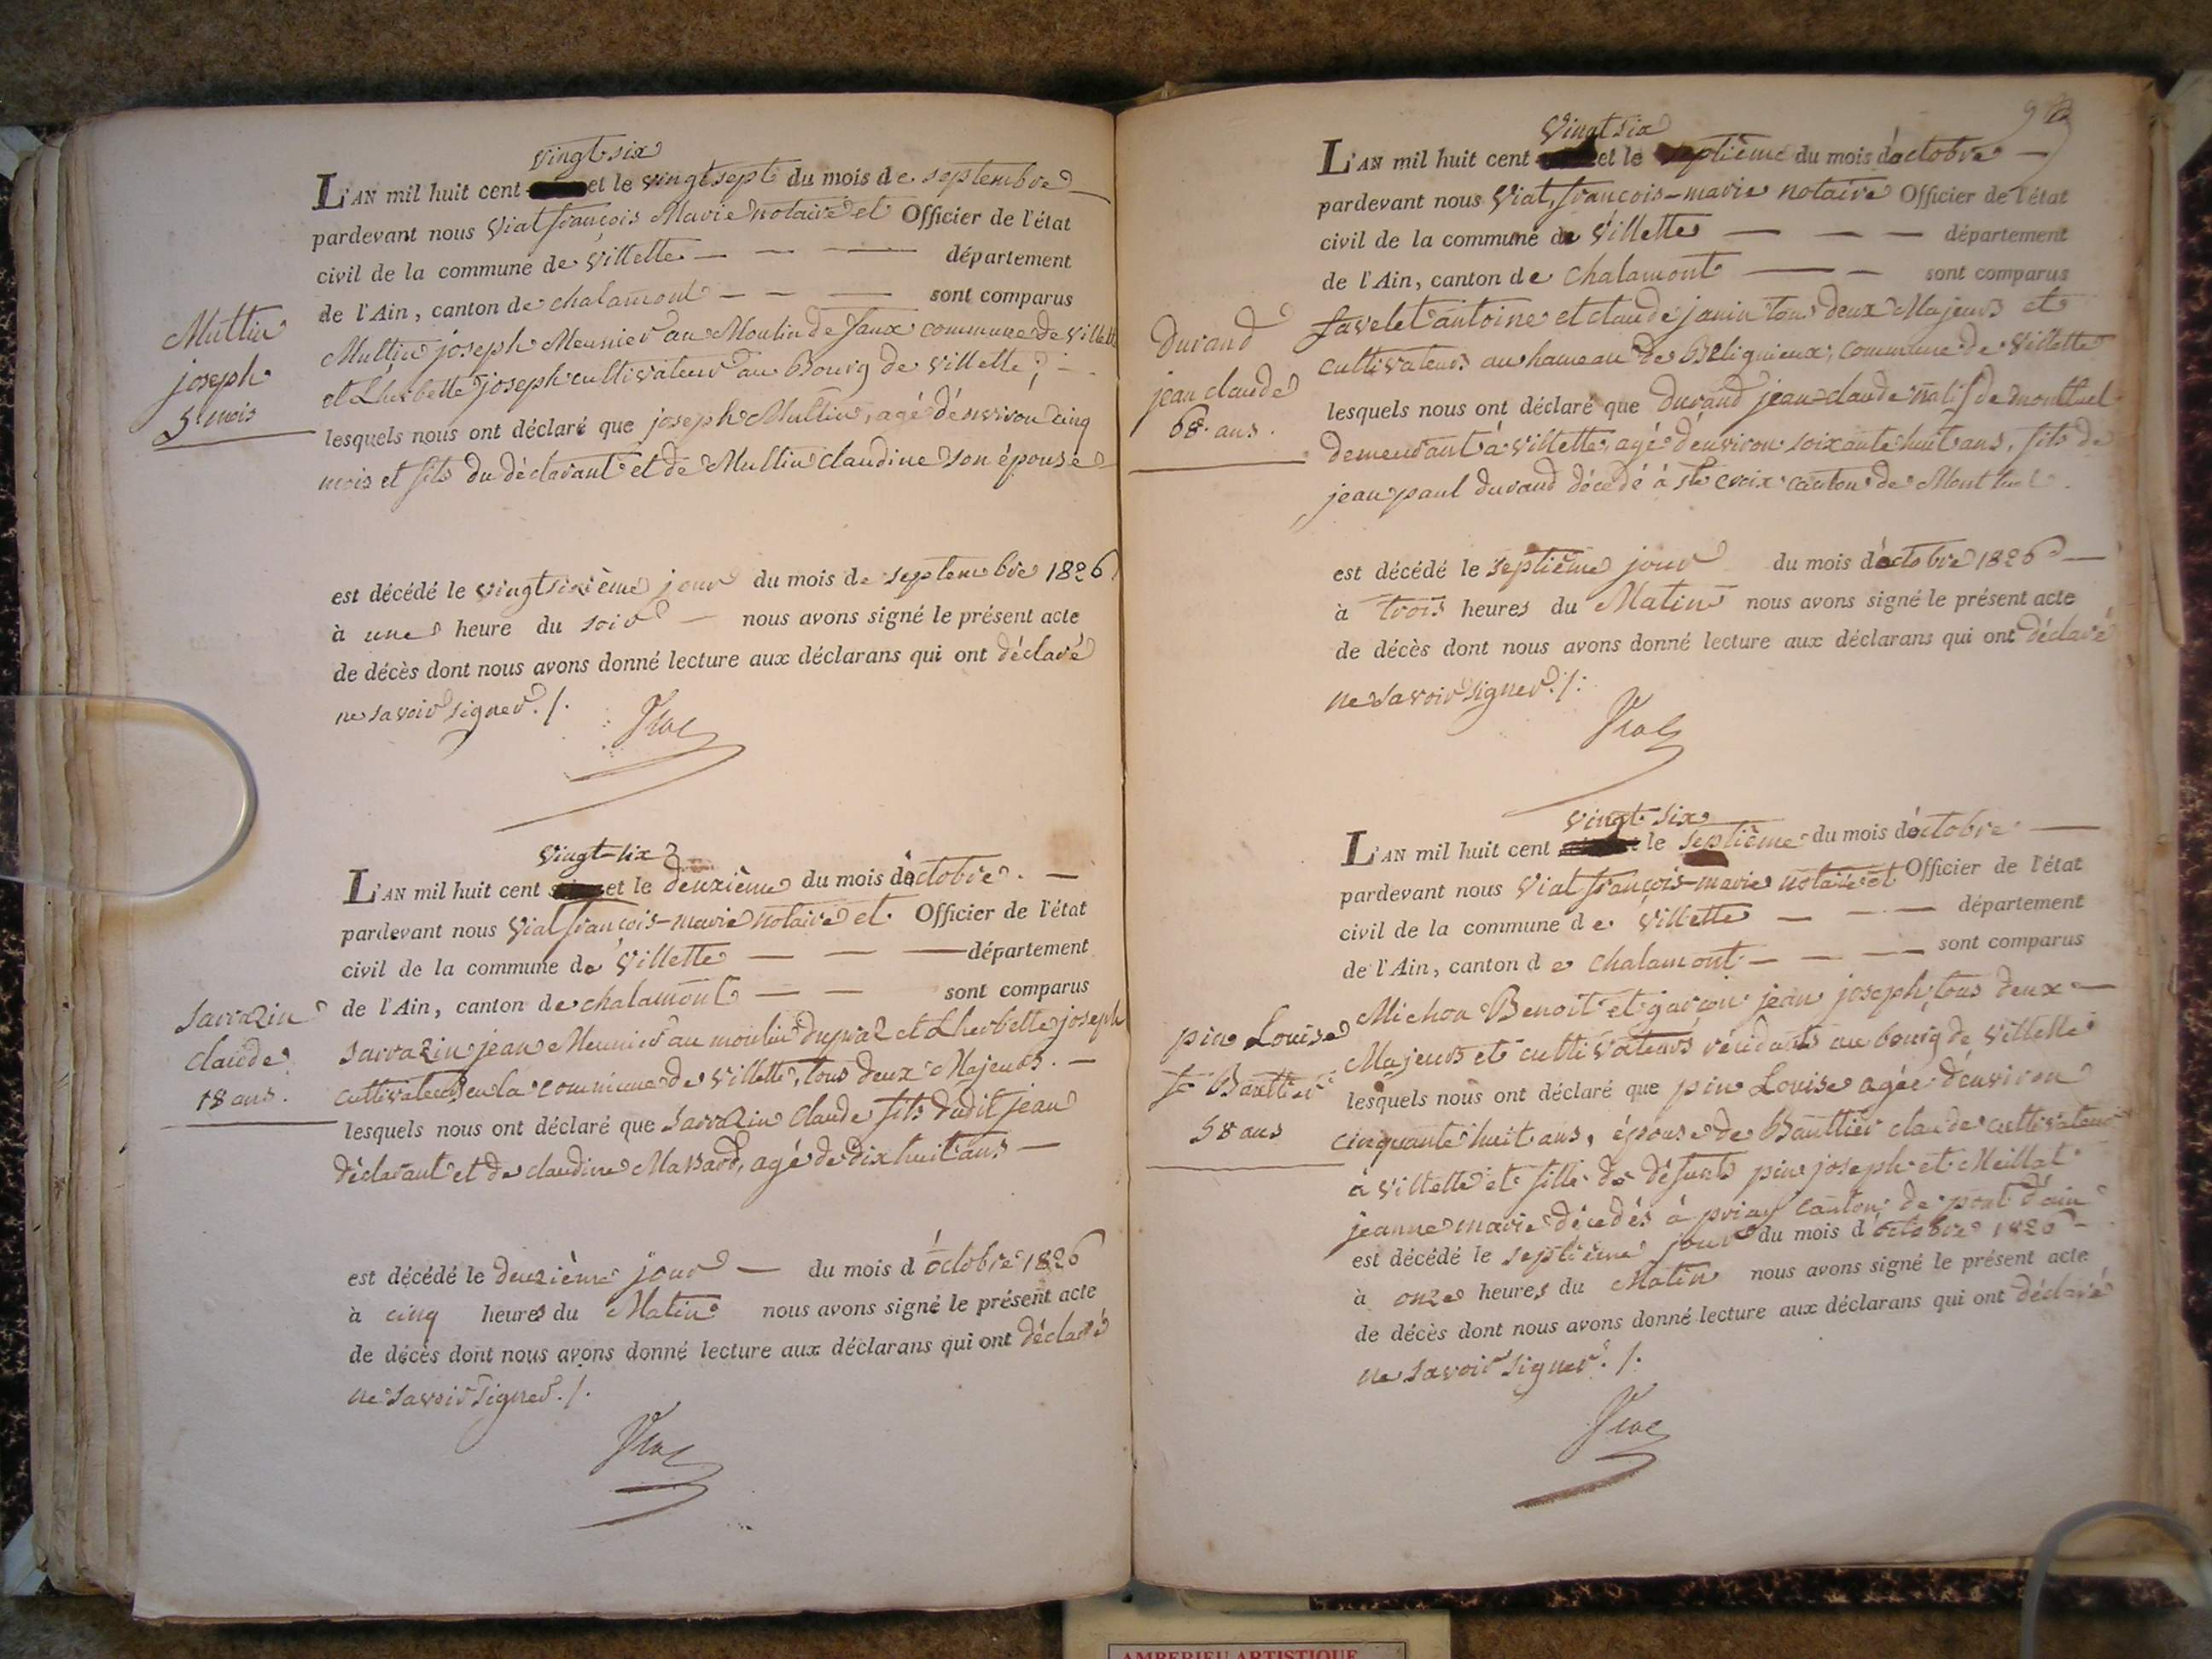 vingt-six
L'AN mil huit cent et le vingt sept du mois de septembre
pardevant nous Vial françois Marie notaire et Officier de l'état
civil de la commune de villette département
de l'Ain, canton de chalamont sont comparus
Muttin joseph Meunier au Moulin de faux commune de villette
et Lherbette joseph cultivateur au Bourg de villette;
lesquels nous ont déclaré que joseph Muttin, agé d'environ cinq
mois et fils du déclarant et de Muttin claudine son épouse
Muttin
joseph
5 mois
est décédé le vingt sixième jour du mois de septembre 1826
à une heure du soir nous avons signé le présent acte
de décès dont nous avons donné lecture aux déclarans qui ont déclaré
ne savoir signer ./.
Vial
Vingt-six
L'AN mil huit cent et le deuxième du mois d'octobre.
pardevant nous Vial françois-marie notaire et Officier de l'état
civil de la commune de Villette département
de l'Ain, canton de chalamont sont comparus
sarrazin jean Meunier au moulin et Lherbette joseph
cultivateurs en la commune de villette, tous deux Majeurs.
lesquels nous ont déclaré que sarrazin claude fils dudit jean
déclarant et de claudine Massard, agé de dix huit ans
sarrazin
claude
18 ans.
est décédé le deuxième jour du mois d'octobre 1826
à cinq heures du Matin nous avons signé le présent acte
de décès dont nous avons donné lecture aux déclarans qui ont déclaré
ne savoir signer ./.
Vial
Vingt six
L'AN mil huit cent et le septième du mois d'octobre
pardevant nous Vial, françois-marie notaire Officier de l'état
civil de la commune de villette département
de l'Ain, canton de chalamont sont comparus
favelet antoine et claude janin tous deux Majeurs et
cultivateurs au hameau de Bélignieux, commune de villette
lesquels nous ont déclaré que durand jean-claude natif de montluel
demeurant à villette, agé d'environ soixante huit ans, fils de
jean paul durand décédé à ste croix canton de Montluel.
Durand
jean claude
68 ans.
est décédé le septième jour du mois d'octobre 1826
à trois heures du Matin nous avons signé le présent acte
de décès dont nous avons donné lecture aux déclarans qui ont déclaré
ne savoir signer ./.
Vial
vingt-six
L'AN mil huit cent le septième du mois d'octobre
pardevant nous Vial françois-marie notaire et Officier de l'état
civil de la commune de Villette département
de l'Ain, canton de chalamont sont comparus
Michon Benoit et garçon jean joseph, tous deux
Majeurs et cultivateurs résidants au bourg de villette
lesquels nous ont déclaré que pin Louise agée d'environ
cinquante huit ans, épouse de Bauttier claude cultivateur
à villette et fille de défunts pin joseph et Meillat
jeanne marie décédés à priay canton de pont d'ain
pin Louise
fe Bauttier
58 ans
est décédé le septième jour du mois d'octobre 1826
à onze heures du Matin nous avons signé le présent acte
de décès dont nous avons donné lecture aux déclarans qui ont déclaré
ne savoir signer ./.
Vial
AMBERIEU ARTISTIQUE